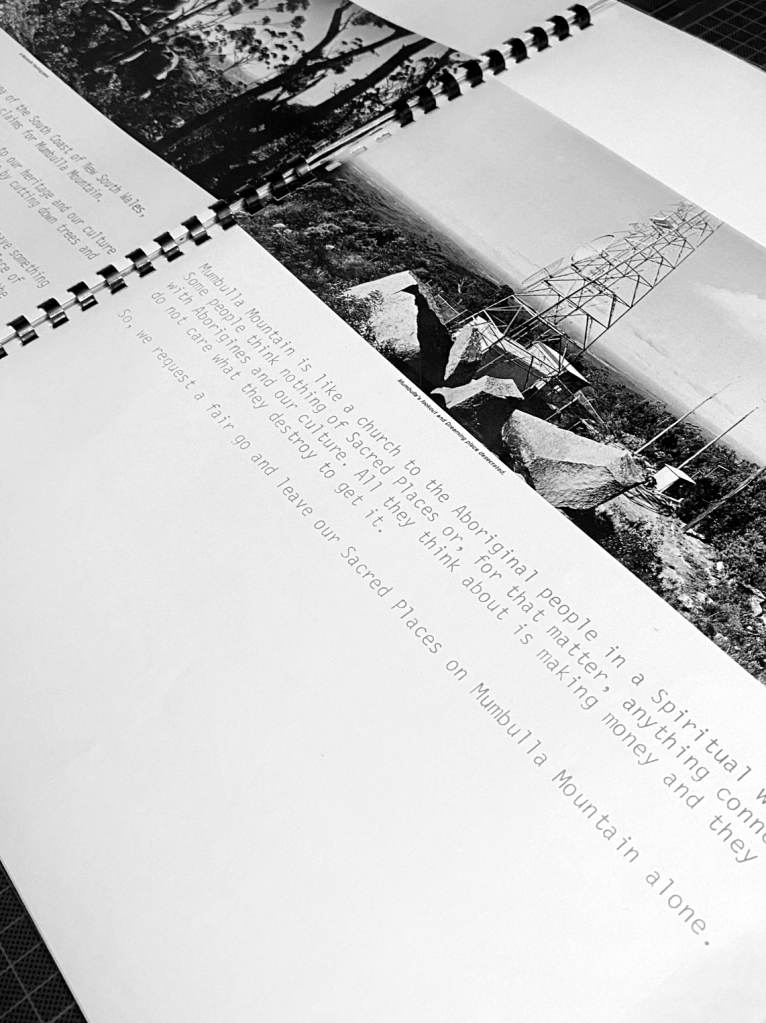 of the South Coast of New South Wales,
claims for Mumbulla Mountain.
to our heritage and our culture
by cutting down trees and
something
of
the
Mumbulla's lookout and Dreaming place desecrated.
Mumbulla Mountain is like a church to the Aboriginal people in a Spiritual
Some people think nothing of Sacred Places or, for that matter, anything
with Aborigines and our culture. All they think about is making money and they
do not care what they destroy to get it.
So, we request a fair go and leave our Sacred Places on Mumbulla Mountain alone.